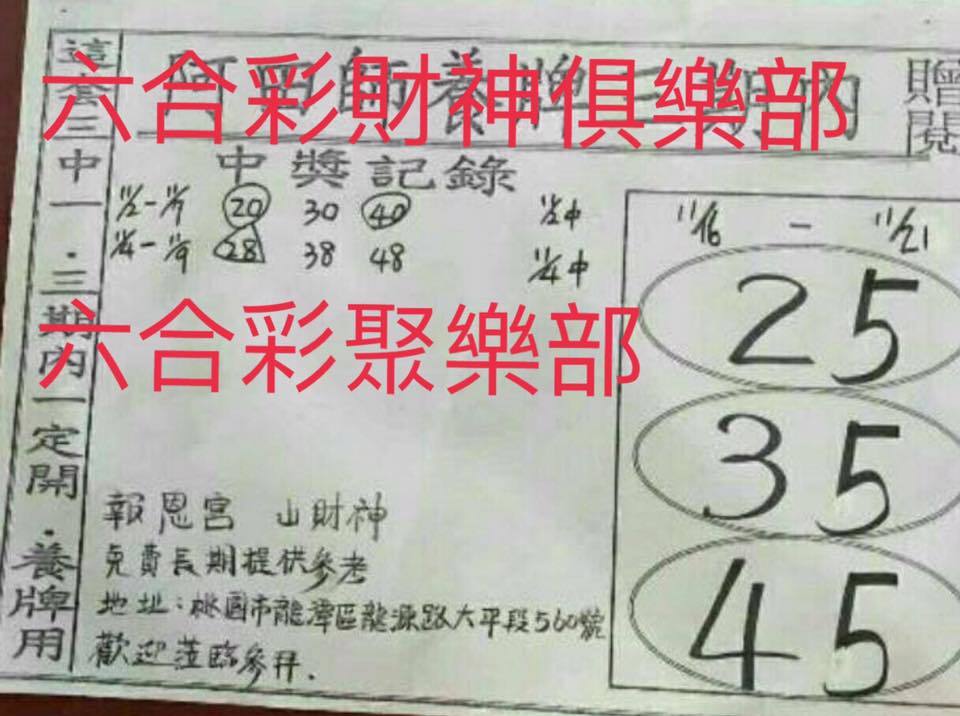 六合彩財神俱樂部
師養牌
期內
贈閱
這套三中一．三期內一定開．養牌用
中獎記錄
11/2-11/7 20 30 40 11/2中
11/4-11/9 28 38 48 11/4中
11/16 - 11/21
25
35
45
六合彩聚樂部
報恩宮 山財神
免費長期提供參考
地址：桃園市龍潭區龍源路大平段560號
歡迎蒞臨參拜．